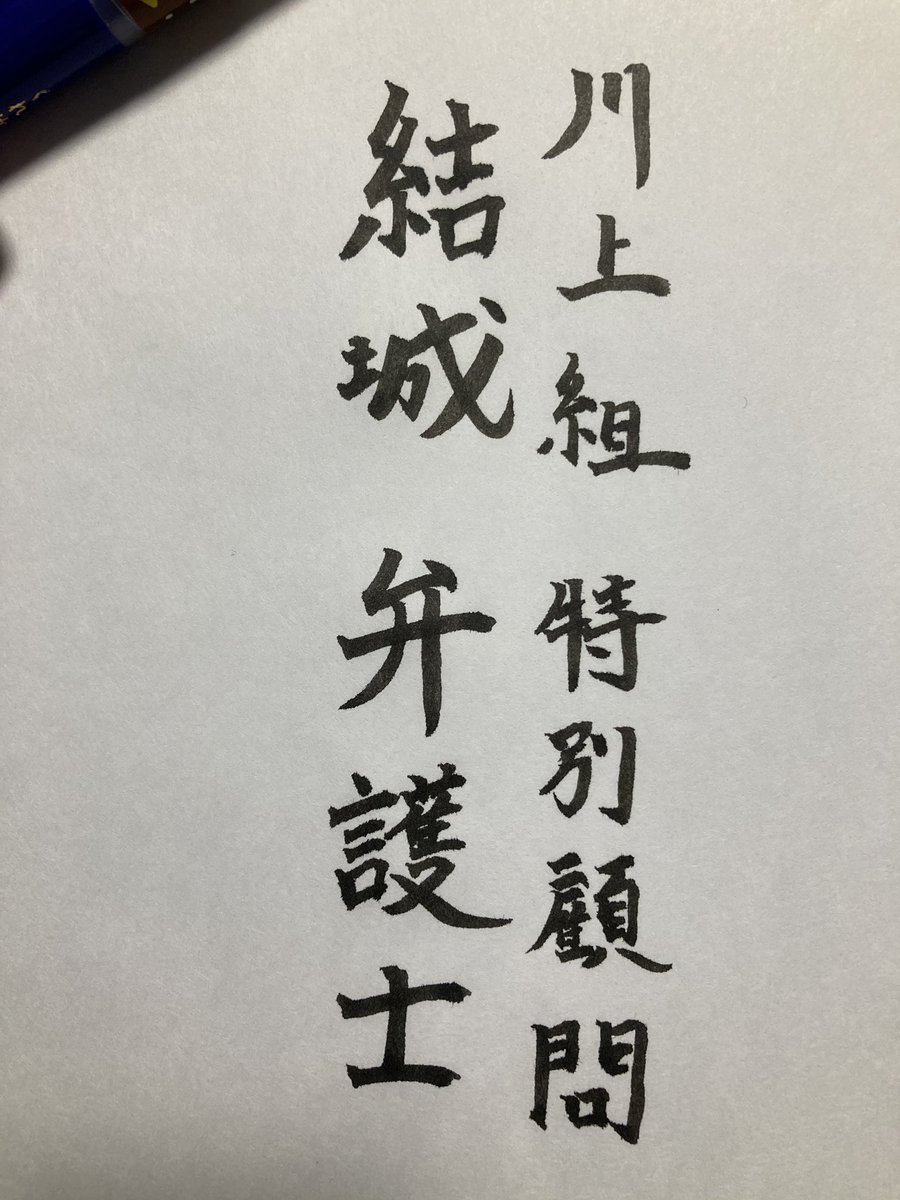 川上組 特別顧問
結城 弁護士